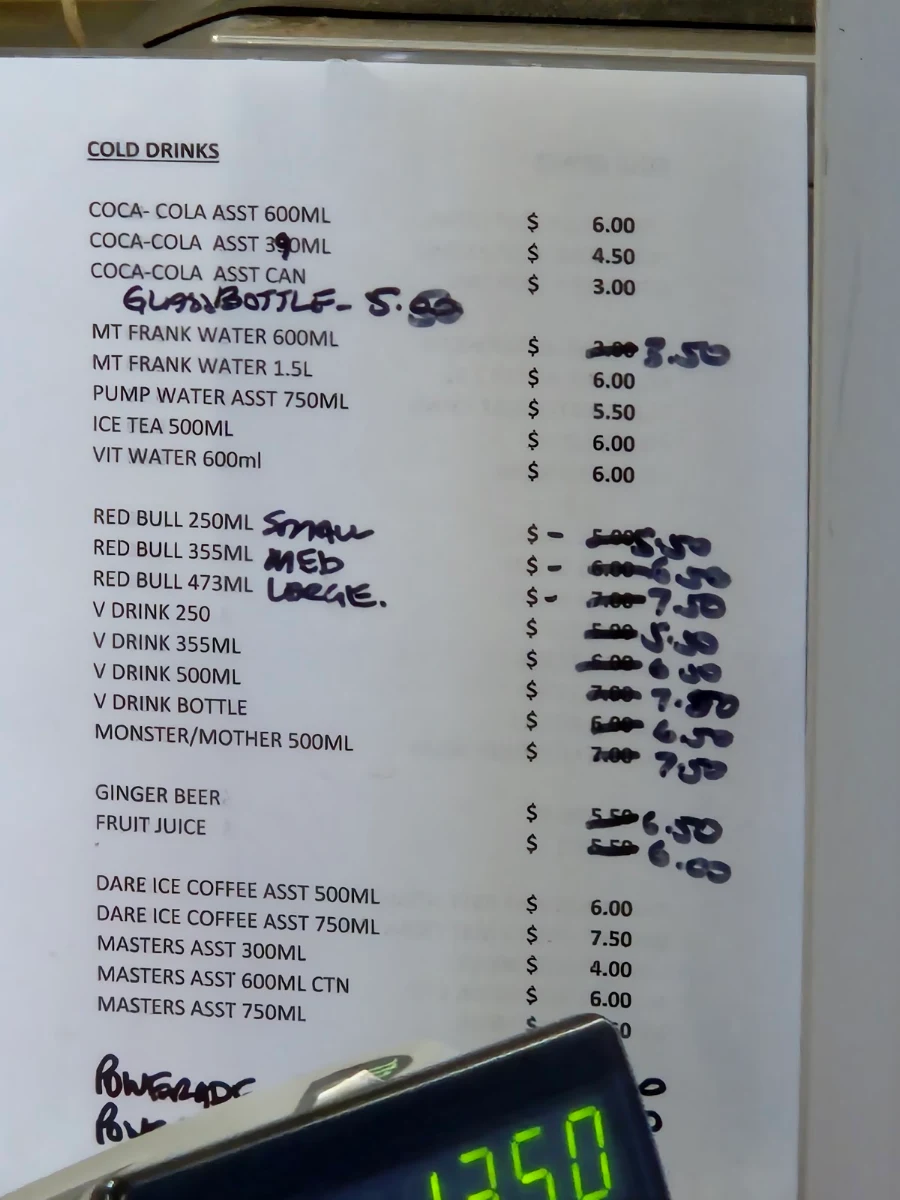 COLD DRINKS
COCA- COLA ASST 600ML $ 6.00
COCA-COLA ASST 390ML $ 4.50
COCA-COLA ASST CAN $ 3.00
GLASS BOTTLE - 5.00
MT FRANK WATER 600ML $ 3.00 3.50
MT FRANK WATER 1.5L $ 6.00
PUMP WATER ASST 750ML $ 5.50
ICE TEA 500ML $ 6.00
VIT WATER 600ml $ 6.00
RED BULL 250ML SMALL $ - 5.00 5.50
RED BULL 355ML MED $ - 6.00 6.50
RED BULL 473ML LARGE. $ - 7.00 7.50
V DRINK 250 $ 5.00 5.50
V DRINK 355ML $ 6.00 6.50
V DRINK 500ML $ 7.00 7.50
V DRINK BOTTLE $ 6.00 6.50
MONSTER/MOTHER 500ML $ 7.00 7.50
GINGER BEER $ 5.50 6.50
FRUIT JUICE $ 5.50 6.00
DARE ICE COFFEE ASST 500ML $ 6.00
DARE ICE COFFEE ASST 750ML $ 7.50
MASTERS ASST 300ML $ 4.00
MASTERS ASST 600ML CTN $ 6.00
MASTERS ASST 750ML $
POWERADE
1350